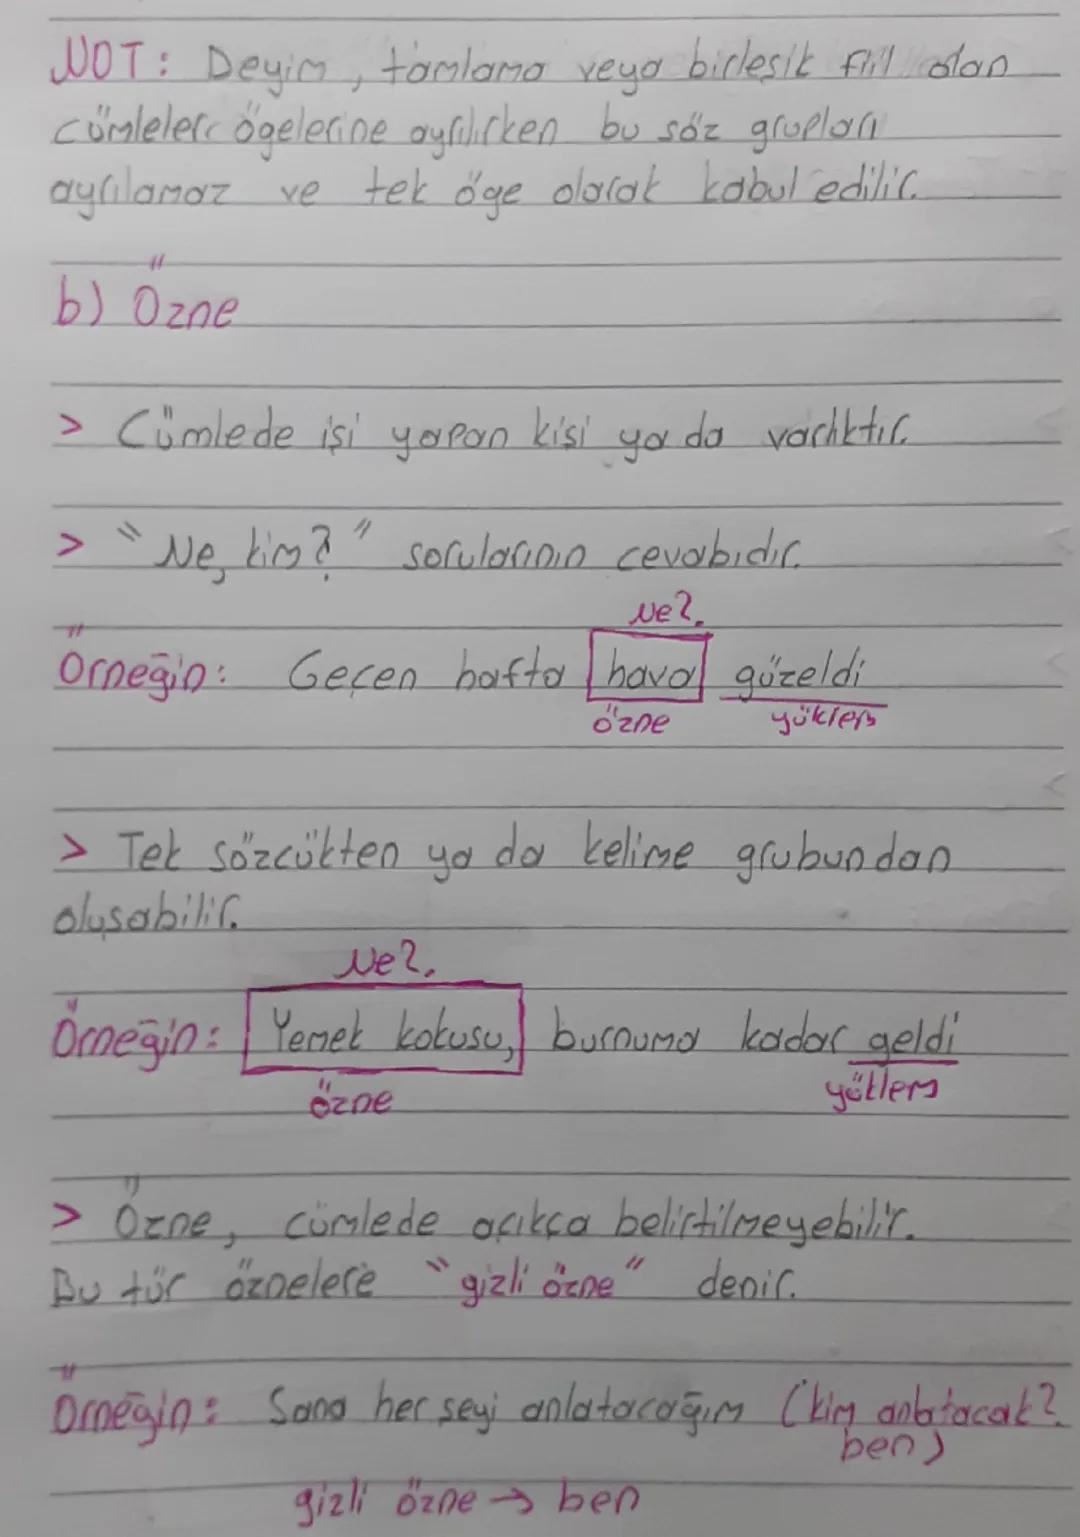 NOT: Deyim, tamlama veya birleşik fiil olan
cümleler ögelerine ayrılırken bu söz grupları
ayrılamaz ve tek öge olarak kabul edilir.
b) Özne
> Cümlede işi yapan kişi ya da varlıktır.
> "Ne, kim?" sorularının cevabıdır.
Ne?
Örneğin: Geçen hafta hava güzeldi
özne yüklem
> Tek sözcükten ya da kelime grubundan
oluşabilir.
Ne?
Örneğin: Yemek kokusu, burnuma kadar geldi
özne yüklem
> Özne, cümlede açıkça belirtilmeyebilir.
Bu tür öznelere "gizli özne" denir.
Örneğin: Sana her şeyi anlatacağım (kim anlatacak?
ben)
gizli özne → ben